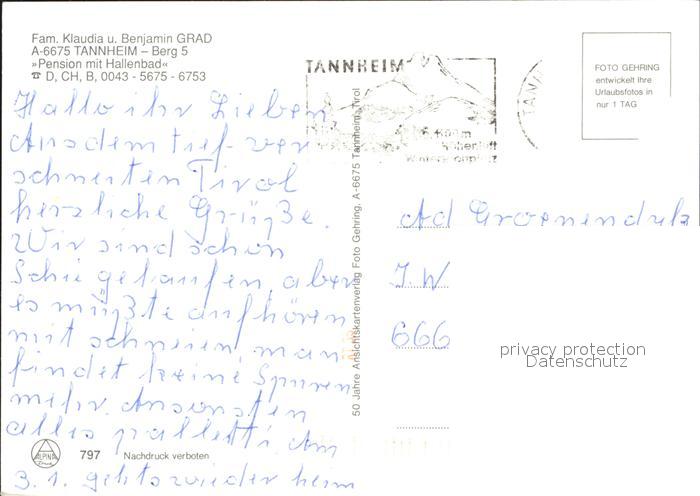 Fam. Klaudia u. Benjamin GRAD
A-6675 TANNHEIM – Berg 5
»Pension mit Hallenbad«
☎ D, CH, B, 0043 - 5675 - 6753
TANNHEIM
TAN
FOTO GEHRING
entwickelt Ihre
Urlaubsfotos in
nur 1 TAG
Hallo ihr Lieben
Aus dem tief-ver
schneiten Tirol
herzliche Grüße.
Wir sind schon
Schi gelaufen, aber
es müßte aufhören
mit schneien, man
findet keine Spuren
mehr. Ansonsten
alles palletti. Am
3. 1. gehts wieder heim
50 Jahre Ansichtskartenverlag Foto Gehring, A-6675 Tannheim, Tirol
Ad
J. W
666
privacy protection
Datenschutz
ALPINA
797 Nachdruck verboten